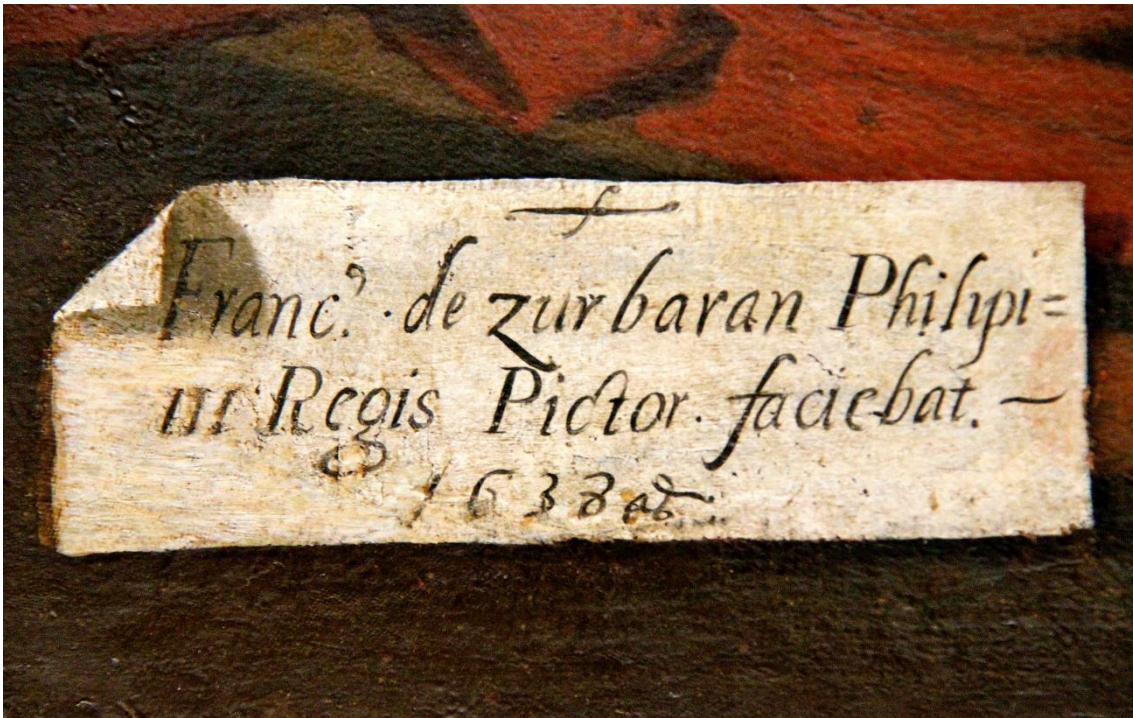 Franc.º de zurbaran Philipi=
IIII Regis Pictor. faciebat. —
1638